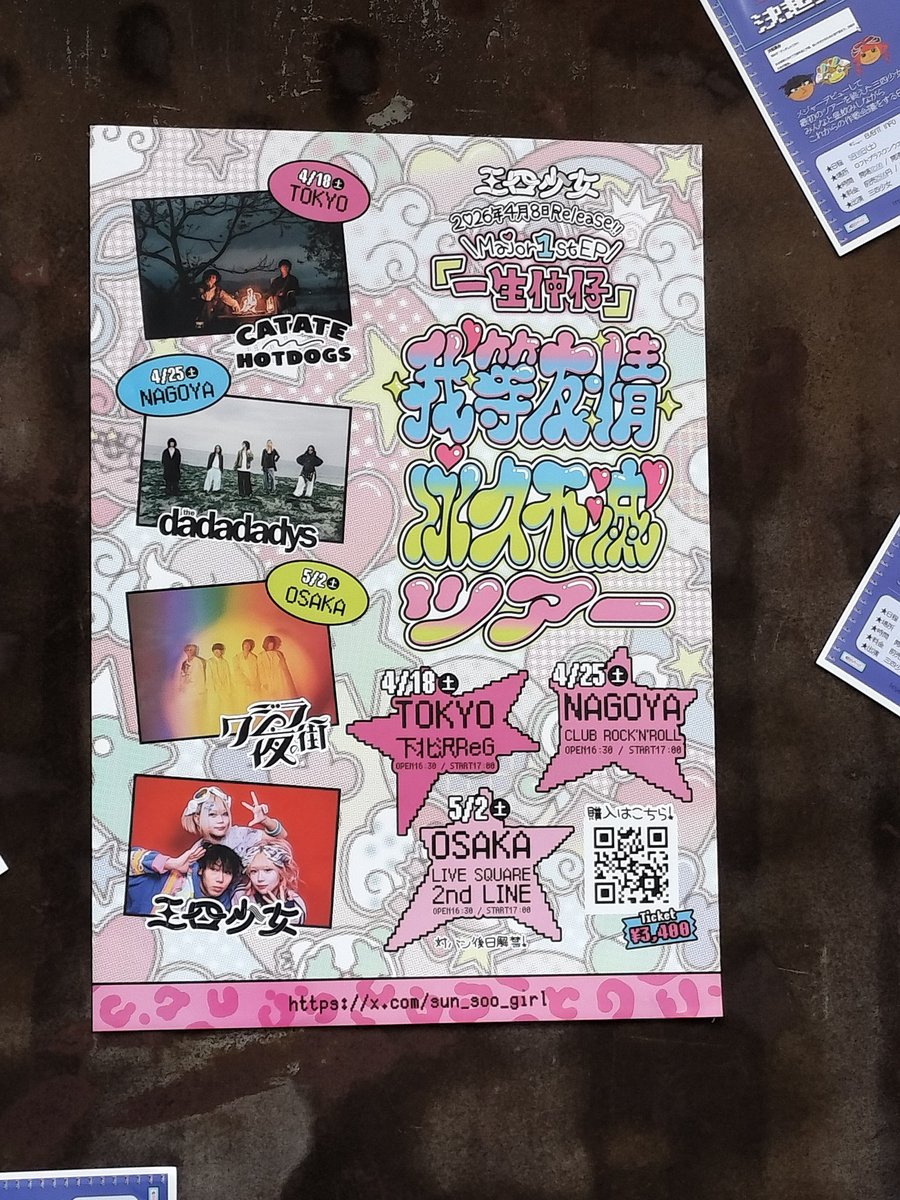 4/18土
TOKYO
CATATE
HOTDOGS
4/25土
NAGOYA
the
dadadadys
5/2土
OSAKA
クジラ夜の街
三四少女
三四少女
2026年4月8日Release!!
\Major1stEP/
「一生仲仔」
我等友情
永久不滅
ツアー
4/18土
TOKYO
下北沢ReG
OPEN16:30 / START17:00
4/25土
NAGOYA
CLUB ROCK'N'ROLL
OPEN16:30 / START17:00
5/2土
OSAKA
LIVE SQUARE
2nd LINE
OPEN16:30 / START17:00
対バン後日解禁!
購入はこちら!
Ticket
¥3,400
https://x.com/sun_soo_girl
メジャーデビューして
最初のツアーを終えた三四少女
みんなと昼飲みしながら
EVENT INFO